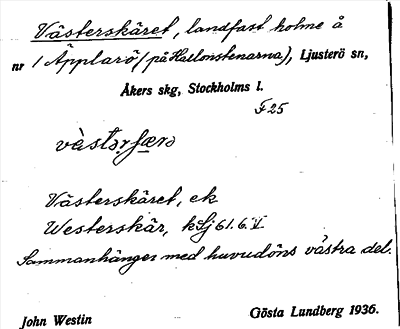 Västerskäret, landfast holme å
nr 1 Äpplarö (på Hallonstenarna), Ljusterö sn,
Åkers skg, Stockholms l.
F 25
Västerskäret, ek
Westerskär, kSj 61.6.V
Sammanhänger med huvudöns västra del.
John Westin Gösta Lundberg 1936.